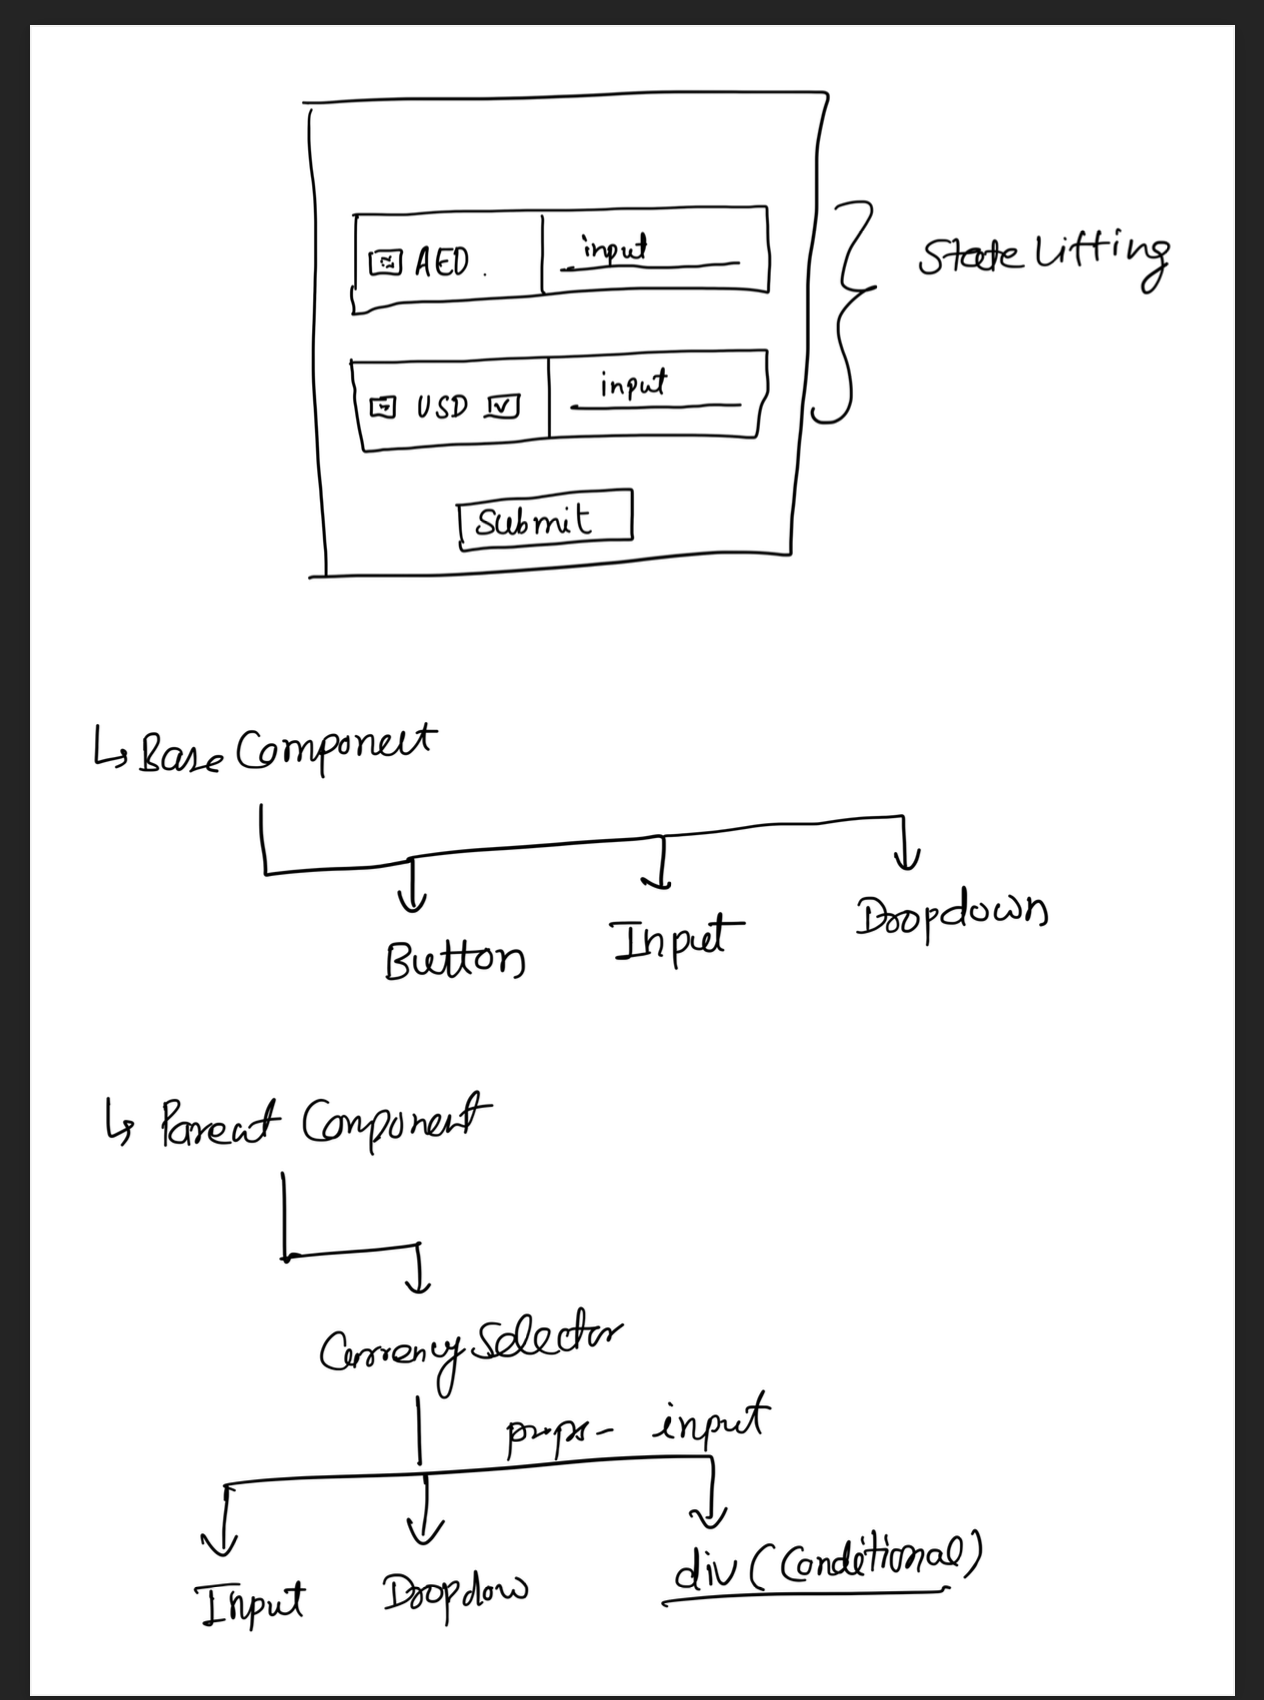 AED .
input
State Lifting
USD
input
Submit
↳ Base Component
Button
Input
Dropdown
↳ Parent Component
Currency Selector
props - input
Input
Dropdow
div (Conditional)